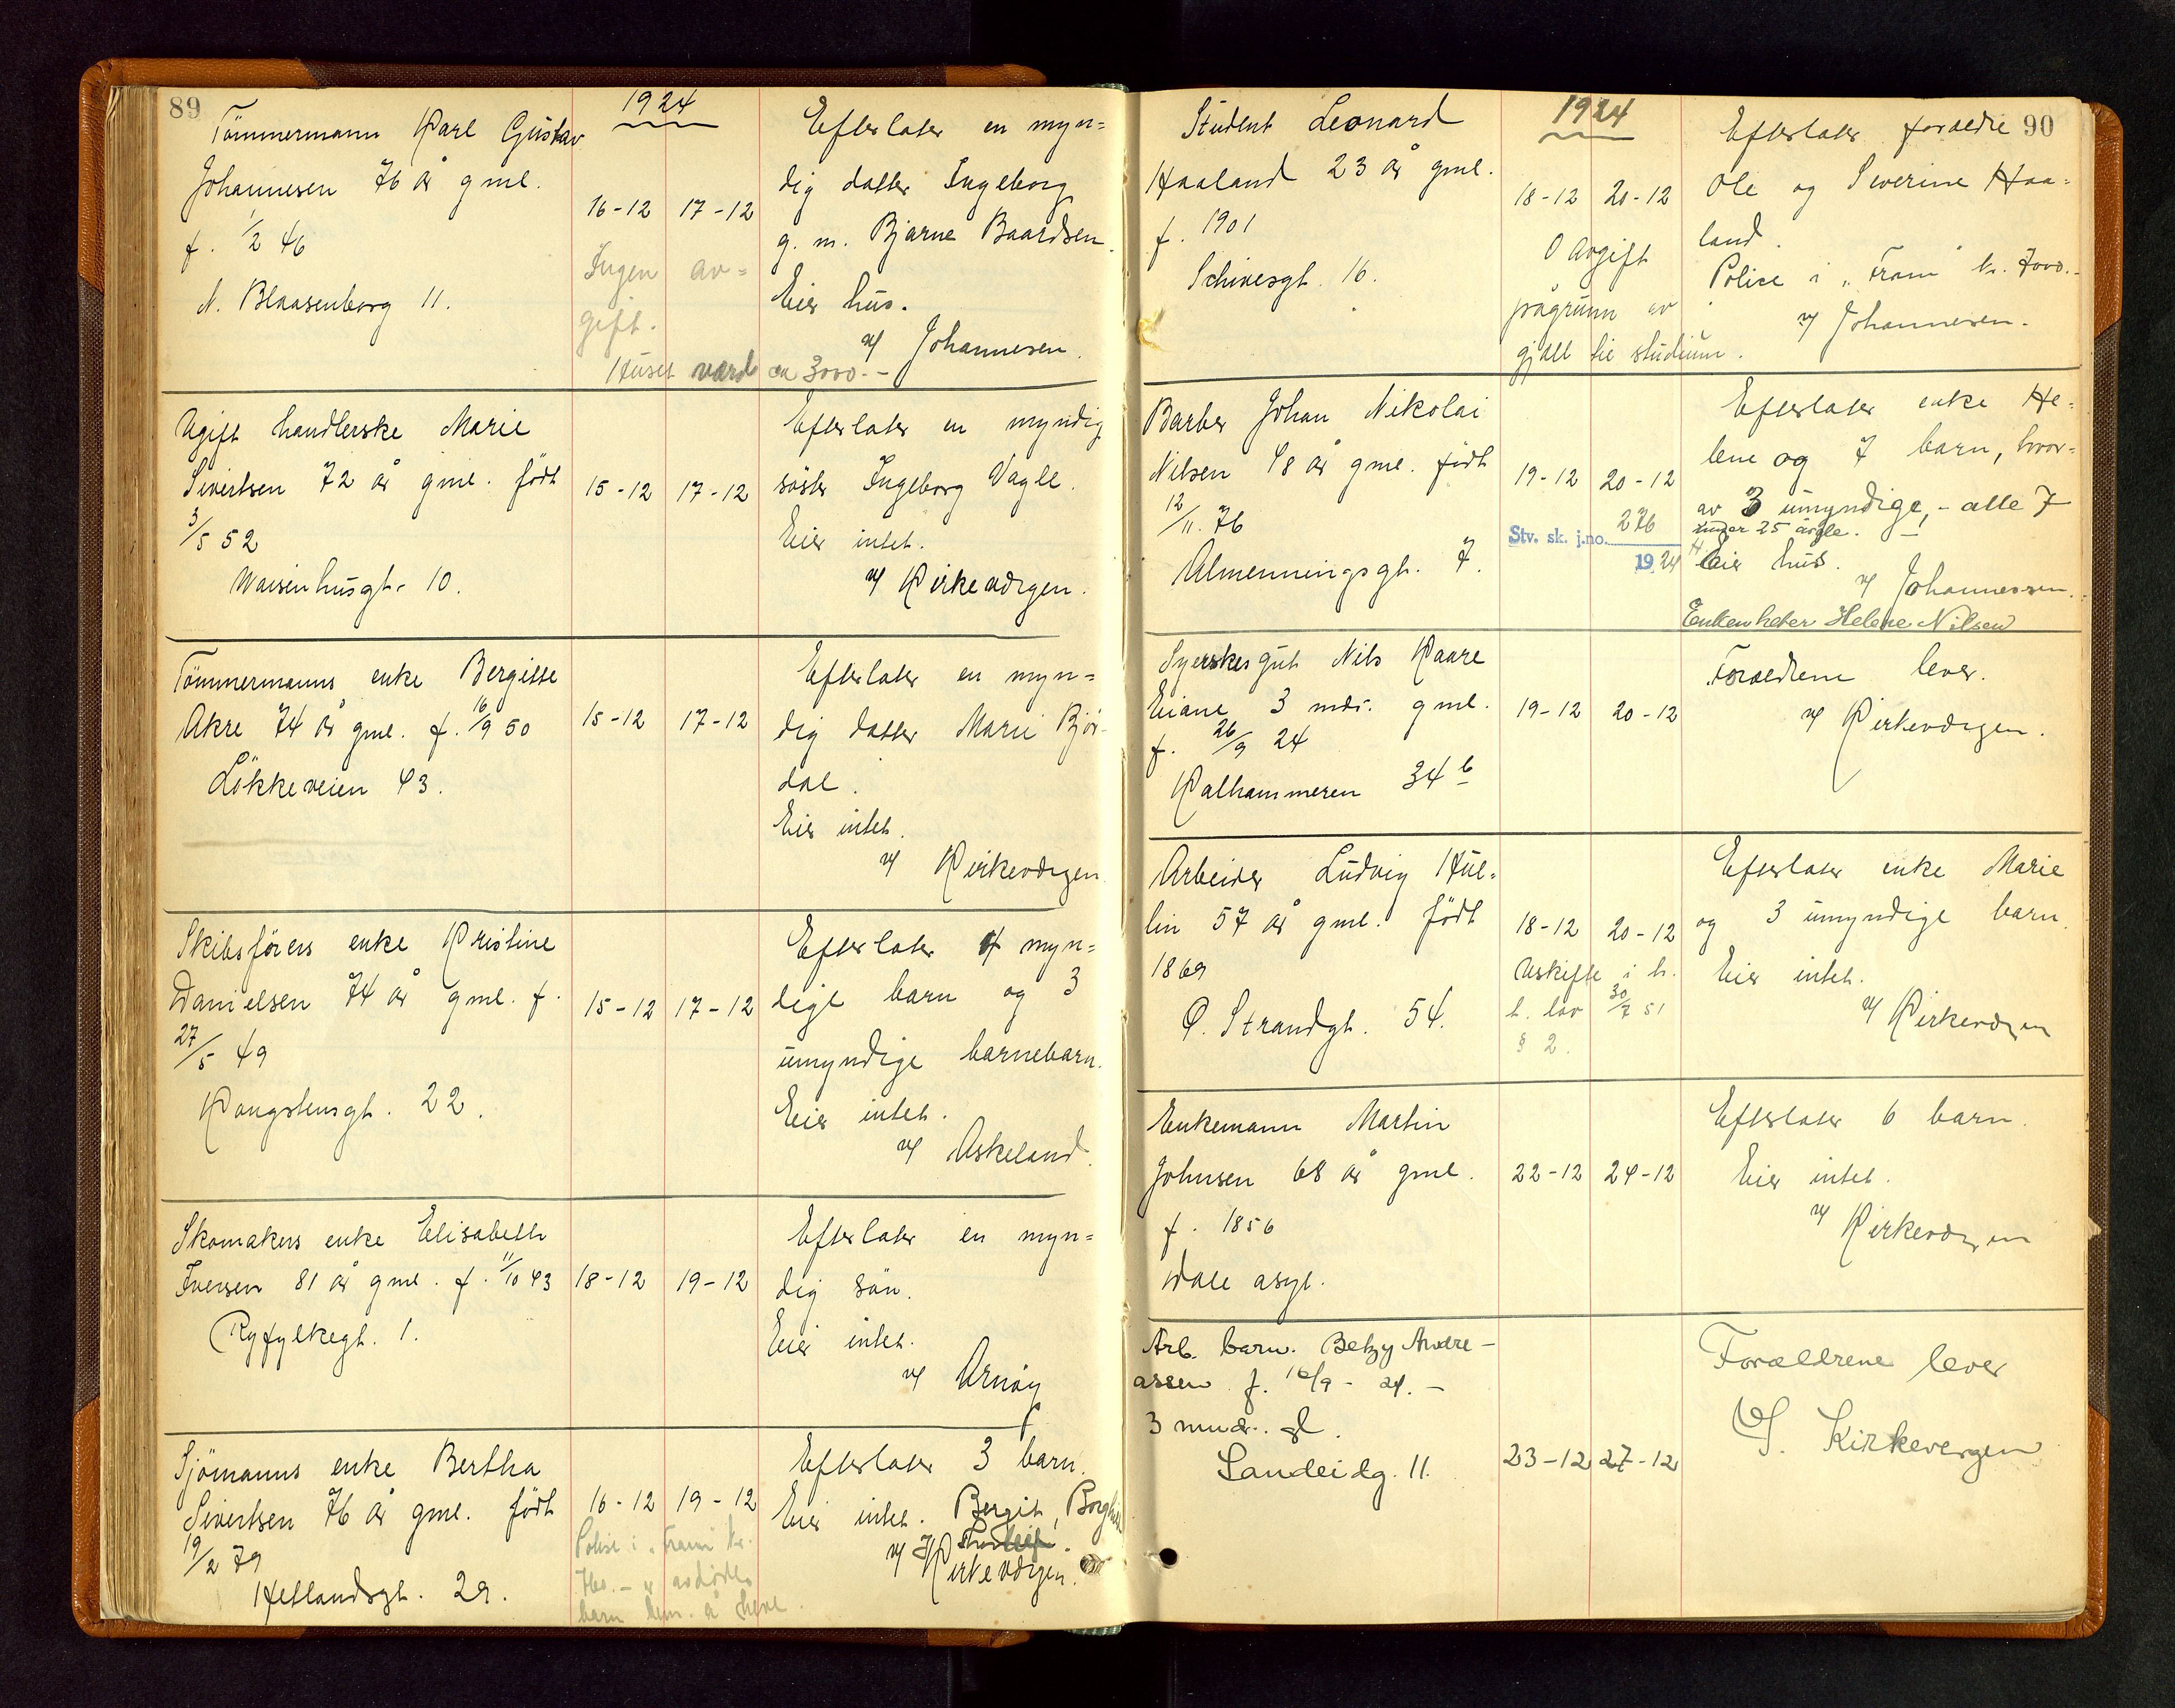 89
1924
Tömmermann Karl Gustav
Johannesen 76 år gml.
f. 1/2 46
N. Blaasenborg 11.
16-12 17-12
Ingen av=
gift.
Huset værd ca 3000.-
Efterlater en myn=
dig datter Ingeborg
g. m. Bjarne Baardsen.
Eier hus.
v/ Johannesen.
Ugift handlerske Marie
Sivertsen 72 år gml. født
3/5 52
Waisenhusgt. 10.
15-12 17-12
Efterlater en myndig
søster Ingeborg Vagle.
Eier intet.
v/ Kirkeværgen.
Tömmermanns enke Bergitte
Akre 74 år gml. f. 16/9 50
Lökkeveien 43.
15-12 17-12
Efterlater en myn=
dig datter Marie Bjør-
dal.
Eier intet.
v/ Kirkeværgen
Skibsförers enke Kristine
Danielsen 74 år gml. f.
27/5 49
Kongstensgt. 22.
15-12 17-12
Efterlater 4 myn=
dige barn og 3
umyndige barnebarn.
Eier intet.
v/ Askeland.
Skomakers enke Elisabeth
Iversen 81 år gml. f. 11/10 43
Ryfylkegt. 1.
18-12 19-12
Efterlater en myn=
dig sön.
Eier intet.
v/ Arnøy
Sjömanns enke Bertha
Sivertsen 76 år gml. født
19/2 79
Hetlandsgt. 29.
16-12 19-12
Police i "Fram" kr.
avdødes
barn å heve.
Efterlater 3 barn.
Eier intet. Bergit, Borghild
Thorleif.
v/ Kirkeværgen.
90
1924
Student Leonard
Haaland 23 år gml.
f. 1901
Schivesgt. 16.
18-12 20-12
0 Avgift
pågrunn av
gjæld til studium.
Efterlater forældre
Ole og Severine Haa=
land.
Police i "Fram" kr. 7000.-
v/ Johannesen.
Barber Johan Nikolai
Nilsen 48 år gml. født
12/11. 76
Almenningsgt. 7.
19-12 20-12
Stv. sk. j.no. 276
1924
Efterlater enke He=
lene og 7 barn, hvor=
av 3 umyndige, - alle 7
under 25 årgle.
Eier hus.
v/ Johannessen.
Enken heter Helene Nilsen
Syerskes gut Nils Kaare
Eiane 3 mdr. gml.
f. 26/9 24
Kalhammeren 34 b
19-12 20-12
Forældrene lever.
v/ Kirkeværgen.
Arbeider Ludvig Hul=
lin 57 år gml. født
1869
Ø. Strandgt. 54.
18-12 20-12
Uskifte i h.
t. lov 30/7 51
§ 2.
Efterlater enke Marie
og 3 umyndige barn.
Eier intet.
v/ Kirkeværgen
Enkemann Martin
Johnsen 68 år gml.
f. 1856
Dale asyl.
22-12 24-12
Efterlater 6 barn.
Eier intet.
v/ Kirkeværgen
Arb. barn. Betzy Andre-
assen f. 16/9 - 24. -
3 mndr. gl.
Sandeidg. 11.
23-12 27-12
Forældrene lever
Kirkevergen